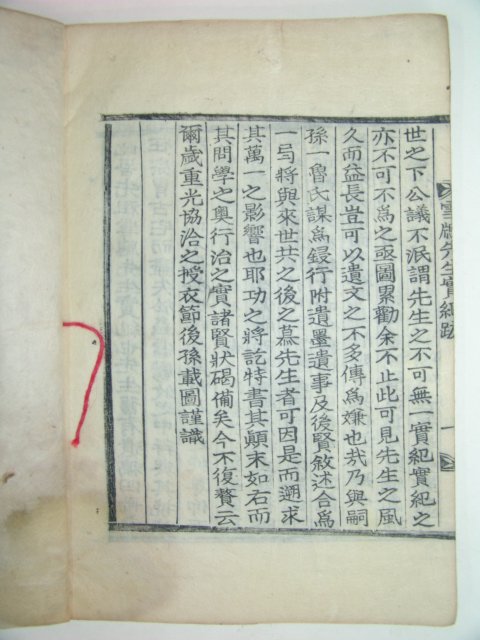 世之下公議不泯謂先生之不可無一實紀實紀之
亦不可不爲之亟圖累勸余不止此可見先生之風
久而益長豈可以遺文之不多傳爲嫌也哉乃與嗣
孫一魯氏謀爲鋟行附遺墨遺事及後賢敘述合爲
一㢧將與來世共之後之慕先生者可因是而遡求
其萬一之影響也耶功之將訖特書其顚末如右而
其問學之奧行治之實諸賢狀碣備矣今不復贅云
爾歲重光協洽之授衣節後孫載圖謹識